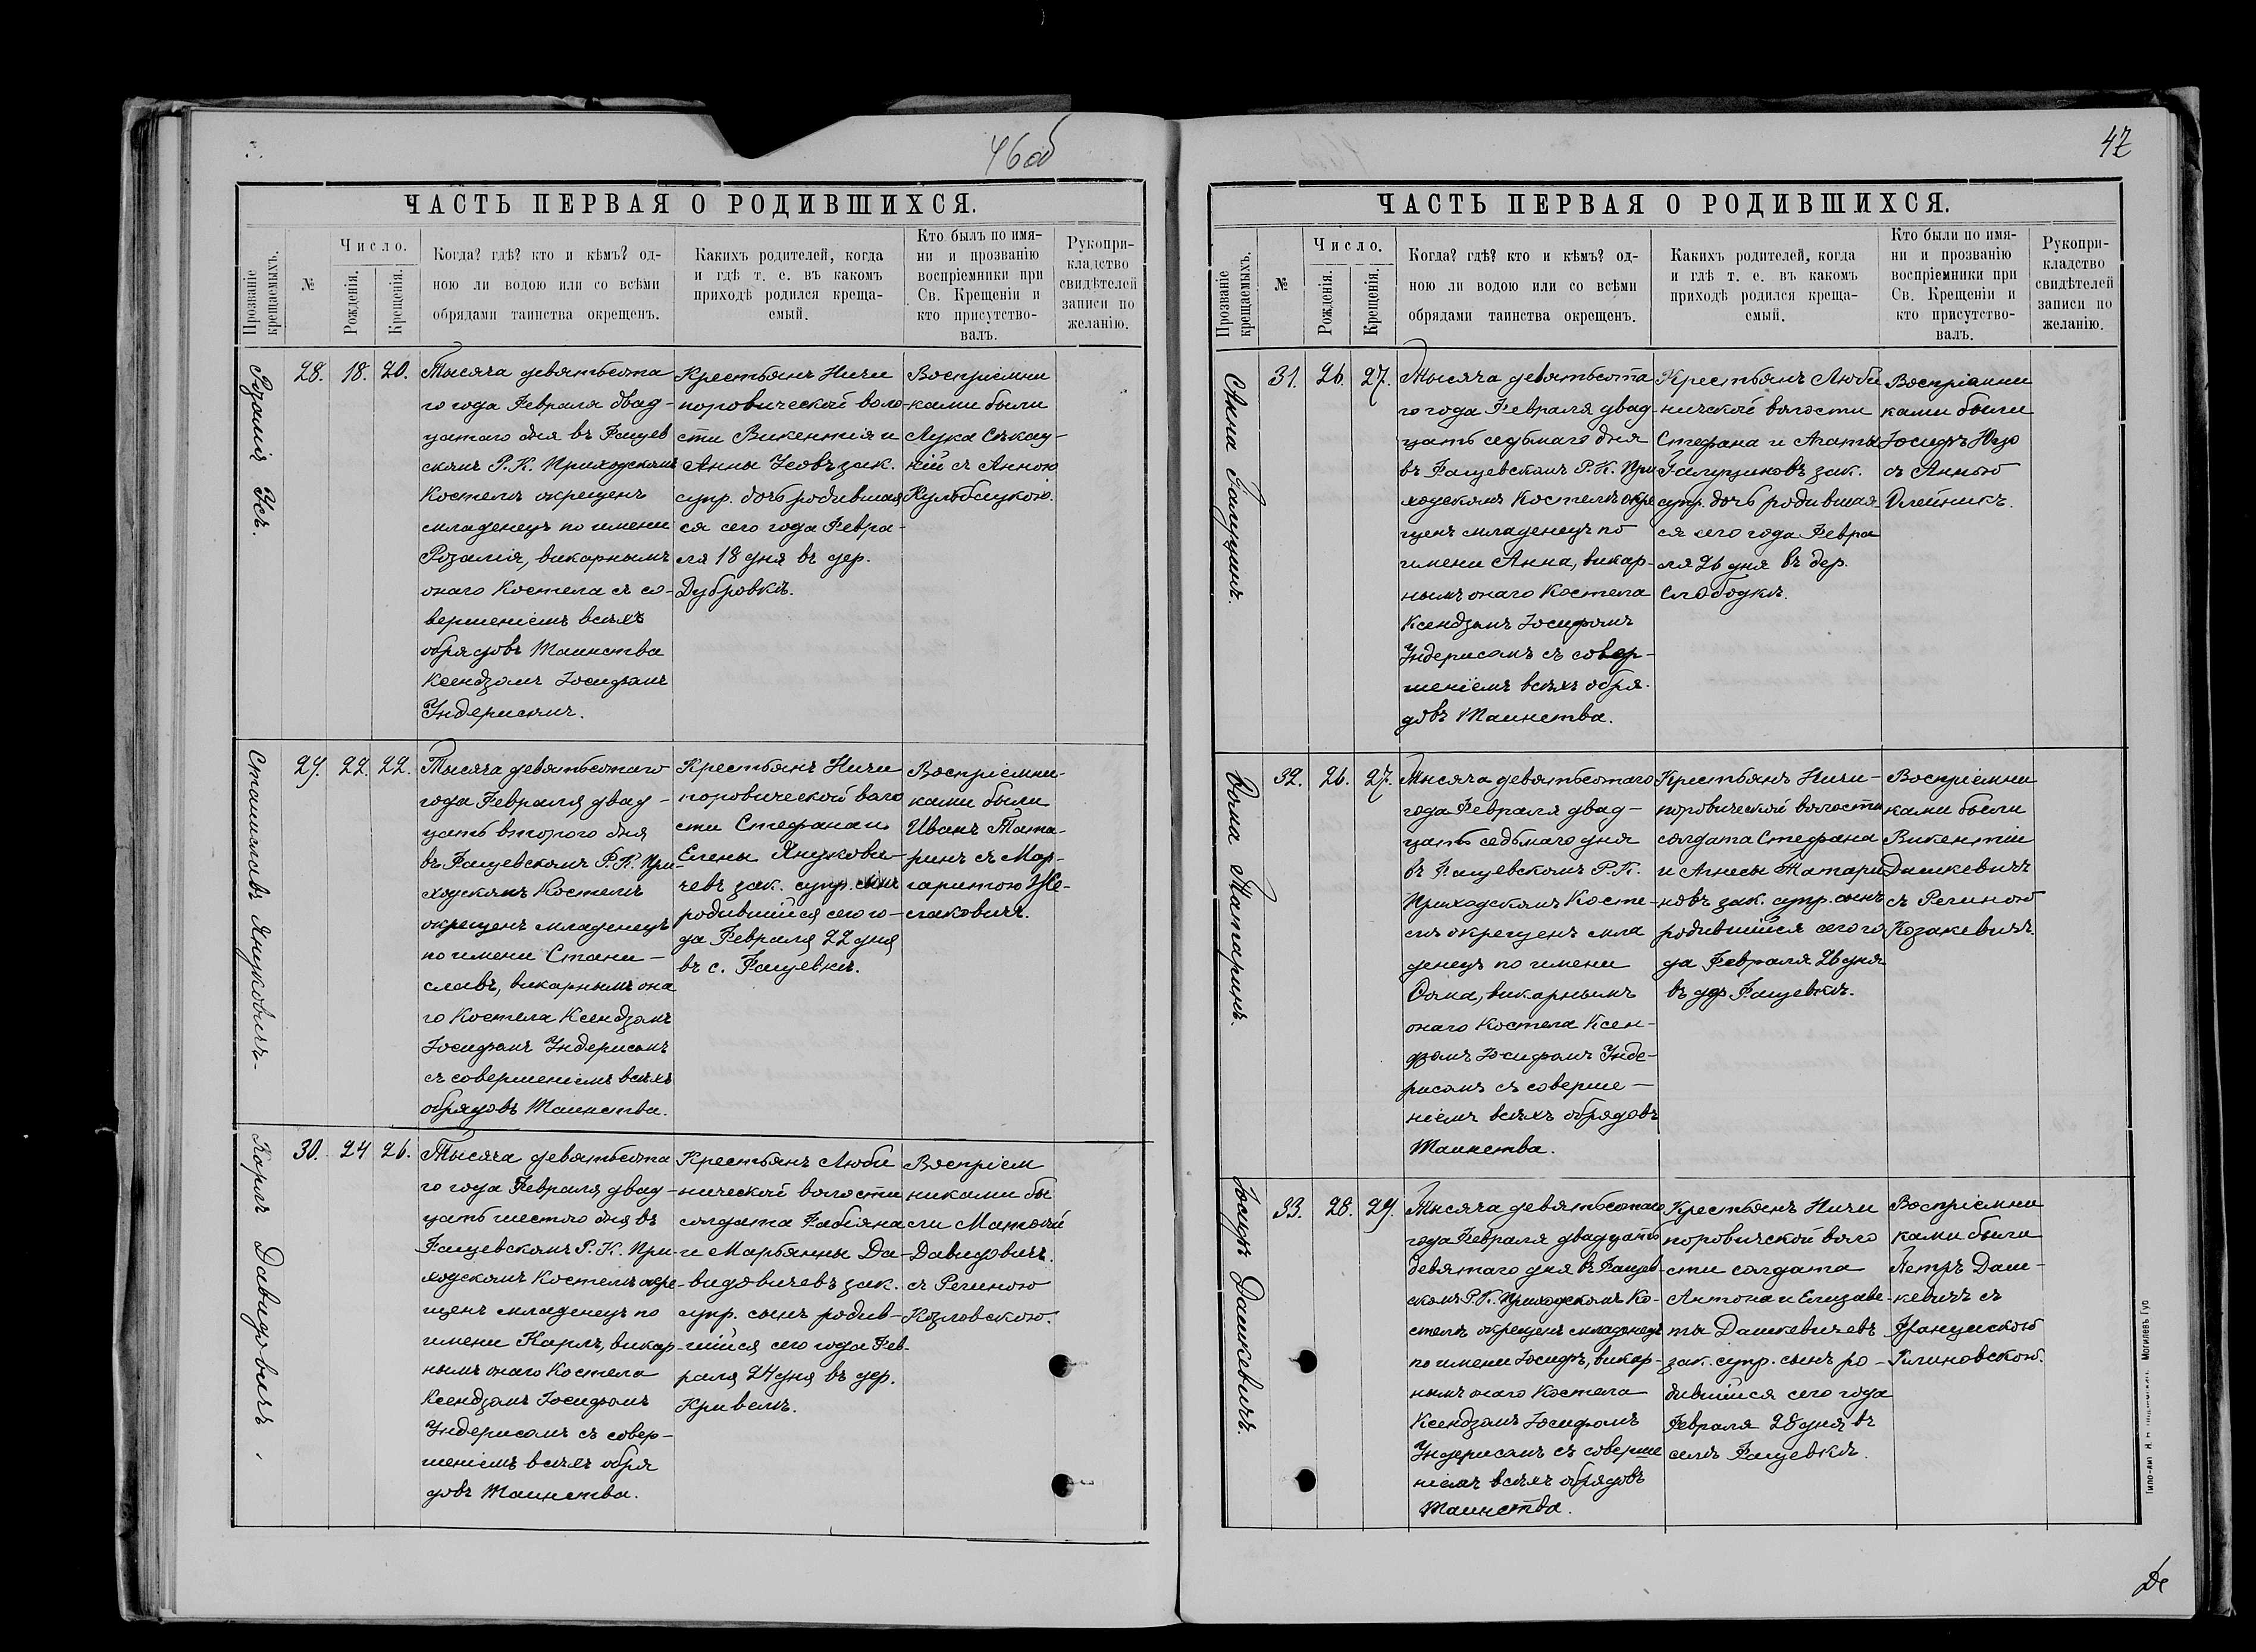 46об
ЧАСТЬ ПЕРВАЯ О РОДИВШИХСЯ.
Прозваніе крещаемыхъ.
№
Число.
Рожденія.
Крещенія.
Когда? гдѣ? кто и кѣмъ? од-
ною ли водою или со всѣми
обрядами таинства окрещенъ.
Какихъ родителей, когда
и гдѣ т. е. въ какомъ
приходѣ родился креща-
емый.
Кто былъ по имя-
ни и прозванію
воспріемники при
Св. Крещеніи и
кто присутство-
валъ.
Рукопри-
кладство
свидѣтелей
записи по
желанію.
Розалія Усъ.
28. 18. 20.
Тысяча девятьсота
го года Февраля двад-
цатаго дня въ Фащев
скомъ Р. К. Приходскомъ
Костелѣ окрещенъ
младенецъ по имени
Розалія, викарнымъ
онаго Костела съ со-
вершеніемъ всѣхъ
обрядовъ Таинства
Ксендзомъ Іосифомъ
Индерисомъ.
Крестьянъ Ничи
поровической воло-
сти Викентія и
Анны Усовъ зак.
супр. дочь родившая
ся сего года Февра-
ля 18 дня въ дер.
Дубровкѣ.
Воспріемни
ками были
Лука
съ Анною
Станиславъ Януковичъ.
29. 22. 22.
Тысяча девятьсотаго
года Февраля двад-
цать второго дня
въ Фащевскомъ Р. К. При-
ходскомъ Костелѣ
окрещенъ младенецъ
по имени Стани-
славъ, викарнымъ она
го Костела Ксендзомъ
Іосифомъ Индерисомъ
съ совершеніемъ всѣхъ
обрядовъ Таинства.
Крестьянъ Ничи
поровической воло
сти Стефана и
Елены Янукови-
чевъ зак. супр. сынъ
родившійся сего го-
да Февраля 22 дня
въ с. Фащевкѣ.
Воспріемни-
ками были
Иванъ Тата-
ринъ съ Мар-
гаритою Же-
лаковичъ.
Карлъ Давидовичъ.
30. 24 26.
Тысяча девятьсота
го года Февраля двад-
цать шестого дня въ
Фащевскомъ Р. К. При-
ходскомъ Костелѣ окре-
щенъ младенецъ по
имени Карлъ, викар-
нымъ онаго Костела
Ксендзомъ Іосифомъ
Индерисомъ съ совер-
шеніемъ всѣхъ обря
довъ Таинства.
Крестьянъ Люби
нической волости
солдата Фабіяна
и Марьянны Да-
видовичевъ зак.
супр. сынъ родив-
шійся сего года Фев-
раля 24 дня въ дер.
Кривелѣ.
Воспріем
никами бы
ли Матвѣй
Давидовичъ
съ Региною
Козловскою.
47
ЧАСТЬ ПЕРВАЯ О РОДИВШИХСЯ.
Прозваніе крещаемыхъ.
№
Число.
Рожденія.
Крещенія.
Когда? гдѣ? кто и кѣмъ? од-
ною ли водою или со всѣми
обрядами таинства окрещенъ.
Какихъ родителей, когда
и гдѣ т. е. въ какомъ
приходѣ родился креща-
емый.
Кто были по имя-
ни и прозванію
воспріемники при
Св. Крещеніи и
кто присутство-
валъ.
Рукопри-
кладство
свидѣтелей
записи по
желанію.
Анна Галущинъ.
31. 26. 27.
Тысяча девятьсота
го года Февраля двад
цать седьмаго дня
въ Фащевскомъ Р. К. При
ходскомъ Костелѣ окре
щенъ младенецъ по
имени Анна, викар-
нымъ онаго Костела
Ксендзомъ Іосифомъ
Индерисомъ съ совер-
шеніемъ всѣхъ обря-
довъ Таинства.
Крестьянъ Люби
нической волости
Стефана и Агаты
Галущиновъ зак.
супр. дочь родившая-
ся сего года Февра
ля 26 дня въ дер.
Слободкѣ.
Воспріемни
ками были
Іосифъ
съ Анною
Олейникъ.
Ѳома Татаринъ.
32. 26. 27.
Тысяча девятьсотаго
года Февраля двад-
цать седьмаго дня
въ Фащевскомъ Р. К.
Приходскомъ Косте-
лѣ окрещенъ мла
денецъ по имени
Ѳома, викарнымъ
онаго Костела Ксен-
дзомъ Іосифомъ Инде-
рисомъ съ соверше-
ніемъ всѣхъ обрядовъ
Таинства.
Крестьянъ Ничи-
поровической волости
солдата Стефана
и Агнесы Татари
новъ зак. супр. сынъ
родившійся сего го
да Февраля 26 дня
въ дер. Фащевкѣ.
Воспріемни
ками были
Викентій
Дашкевичъ
съ Региною
Козакевичъ.
Іосифъ Дашкевичъ.
33. 28. 29.
Тысяча девятьсотаго
года Февраля двадцать
девятаго дня въ Фащев-
скомъ Р. К. Приходскомъ Ко-
стелѣ окрещенъ младенецъ
по имени Іосифъ, викар-
нымъ онаго Костела
Ксендзомъ Іосифомъ
Индерисомъ съ соверше
ніемъ всѣхъ обрядовъ
Таинства.
Крестьянъ Ничи
поровической воло
сти солдата
Антона и Елизаве-
ты Дашкевичевъ
зак. супр. сынъ ро-
дившійся сего года
Февраля 28 дня въ
селѣ Фащевкѣ.
Воспріемни
ками были
Петръ Даш-
кевичъ съ
Францишкою
Глиновскою.
Могилевъ Губ